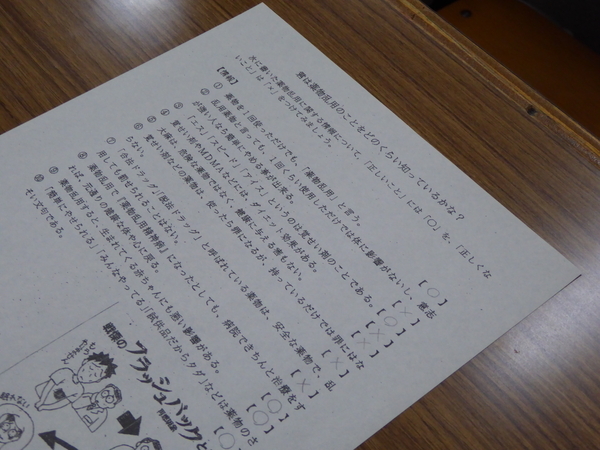 君は薬物乱用のことをどのくらい知っているかな？
次に書いた薬物乱用に関する情報について、「正しいこと」には「○」を、「正しくな
いこと」は「×」をつけてみましょう。
【情報】
① 薬物を1回使っただけでも、「薬物乱用」と言う。 【○】
② 乱用薬物と言っても、1回くらい使用しただけでは体に影響がないし、意志
が強い人なら簡単にやめる事が出来る。 【×】
③ 「エス」「スピード」「アイス」というのは覚せい剤のことである。 【○】
④ 覚せい剤やMDMAなどには、ダイエット効果がある。 【×】
⑤ 大麻は、危険な薬物ではなく、健康に与える害もない。 【×】
⑥ 覚せい剤などの薬物は、使ったら罪になるが、持っているだけでは罪にはな
らない。 【×】
⑦ 「合法ドラッグ」「脱法ドラッグ」と呼ばれている薬物は、安全な薬物で、乱
用しても罰せられることはない。 【×】
⑧ 薬物乱用で「薬物乱用精神病」になったとしても、病院できちんと治療をす
れば、元通りの健康な体や心に戻る。
⑨ 薬物乱用すると、生まれてくる赤ちゃんにも悪い影響がある。 【○】
⑩ 「簡単にやせられる」「みんなやってる」「試供品だからタダ」などは薬物のさ
そい文句である。 【○】
戦慄の
フラッシュバック
と
再燃現象
眠れない